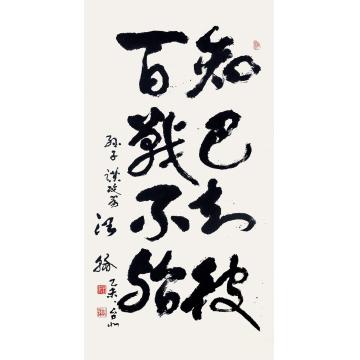 知己知彼
百戰不殆
孫子謀攻篇
乙未 台北